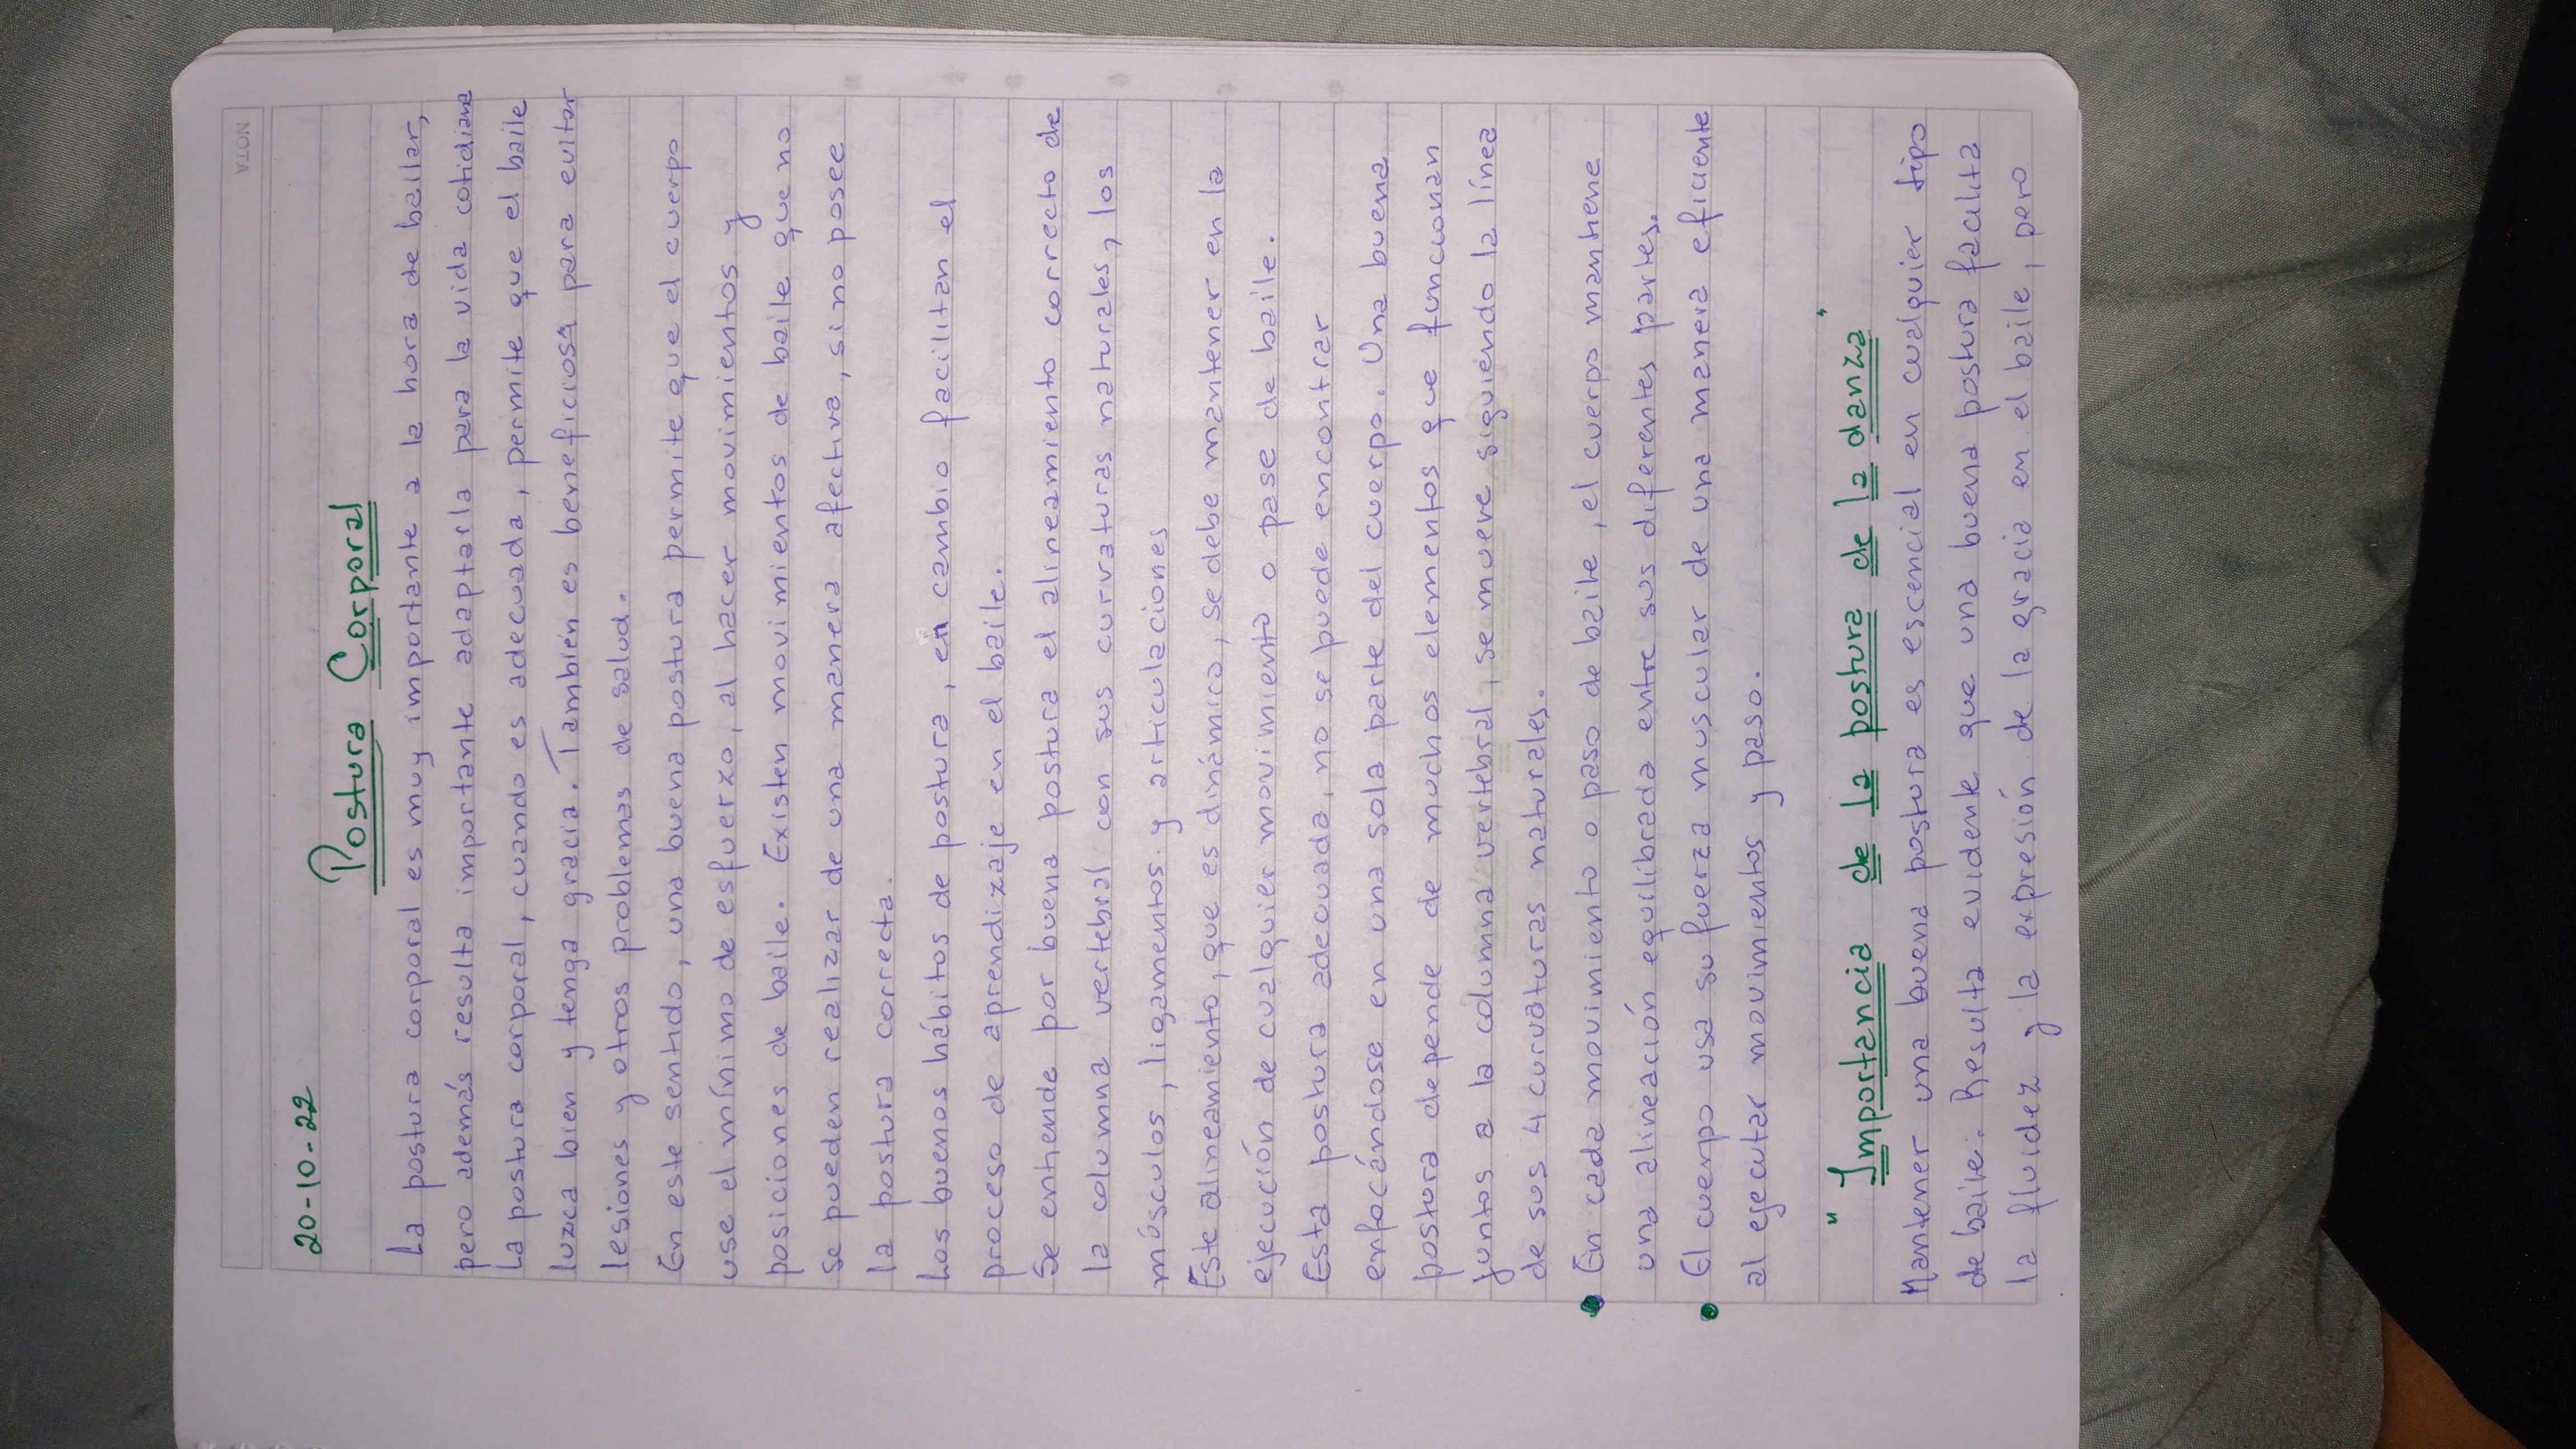 NOTA
20-10-22
Postura Corporal
La postura corporal es muy importante a la hora de bailar,
pero además resulta importante adaptarla para la vida cotidiana
La postura corporal, cuando es adecuada, permite que el baile
luzca bien y tenga gracia. También es beneficiosa para evitar
lesiones y otros problemas de salud.
En este sentido, una buena postura permite que el cuerpo
use el mínimo de esfuerzo, al hacer movimientos y
posiciones de baile. Existen movimientos de baile que no
se pueden realizar de una manera afectiva, si no posee
la postura correcta.
Los buenos hábitos de postura, en cambio facilitan el
proceso de aprendizaje en el baile.
Se entiende por buena postura el alineamiento correcto de
la columna vertebral con sus curvaturas naturales, los
músculos, ligamentos y articulaciones
Este alineamiento, que es dinámico, se debe mantener en la
ejecución de cualquier movimiento o pase de baile.
Esta postura adecuada, no se puede encontrar
enfocándose en una sola parte del cuerpo. Una buena
postura depende de muchos elementos que funcionan
juntos a la columna vertebral, se mueve siguiendo la línea
de sus 4 curvaturas naturales.
• En cada movimiento o paso de baile, el cuerpo mantiene
una alineación equilibrada entre sus diferentes partes.
• El cuerpo usa su fuerza muscular de una manera eficiente
al ejecutar movimientos y paso.
" Importancia de la postura de la danza "
Mantener una buena postura es escencial en cualquier tipo
de baile. Resulta evidente que una buena postura facilita
la fluidez y la expresión de la gracia en el baile, pero